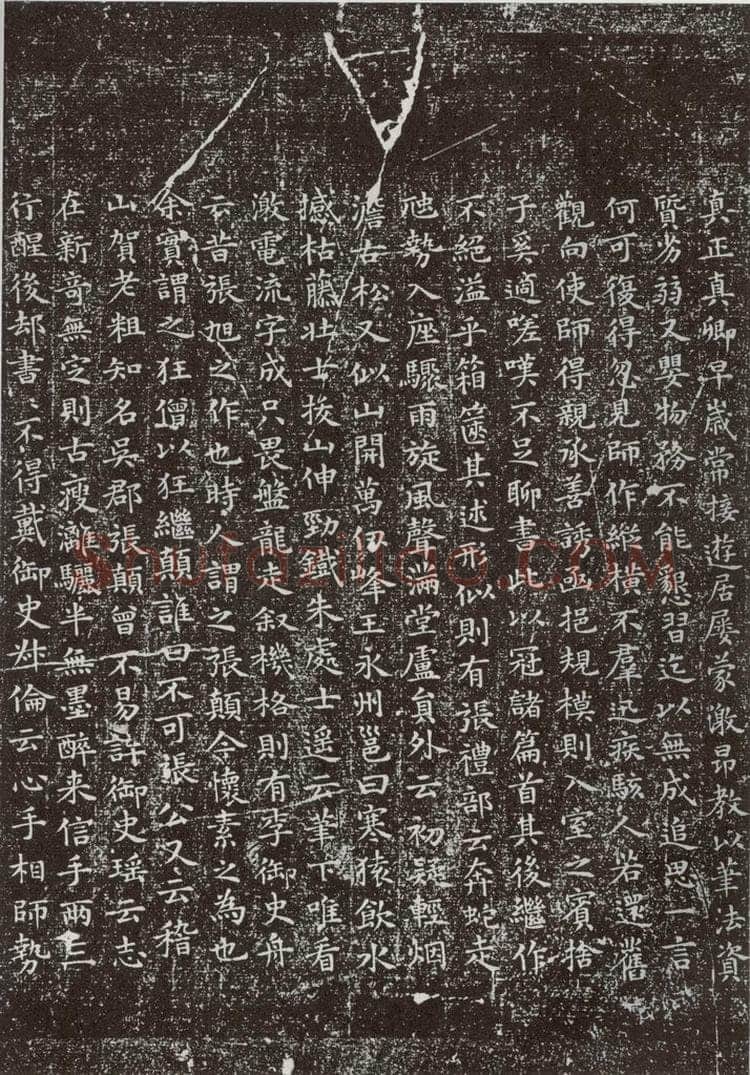 真正真卿早歲常接遊居屢蒙激昂教以筆法資
質劣弱又嬰物務不能懇習迄以無成追思一言
何可復得忽見師作縱橫不羣迅疾駭人若還舊
觀向使師得親承善誘亟挹規模則入室之賓捨
子奚適嗟嘆不足聊書此以冠諸篇首其後繼作
不絕溢乎箱篋其述形似則有張禮部云奔蛇走
虺勢入座驟雨旋風聲滿堂盧員外云初疑輕烟
澹古松又似山開萬仞峰王永州邕曰寒猿飲水
撼枯藤壯士拔山伸勁鐵朱處士遥云筆下唯看
激電流字成只畏盤龍走叙機格則有李御史舟
云昔張旭之作也時人謂之張顛今懷素之為也
余實謂之狂僧以狂繼顛誰曰不可張公又云稽
山賀老粗知名吳郡張顛曾不易許御史瑶云志
在新奇無定則古瘦灕驪半無墨醉来信手兩三
行醒後却書〻不得戴御史叔倫云心手相師勢
shufaziliao.COM